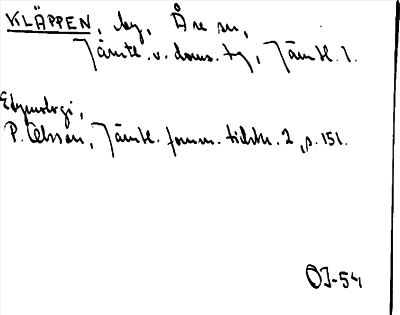 KLÄPPEN, by, Åre sn,
Jämtl. v. doms. tg, Jämtl. l.
Etymologi,
P. Olsson, Jämtl. fornm. tidskr. 2, s. 151.
OJ-54